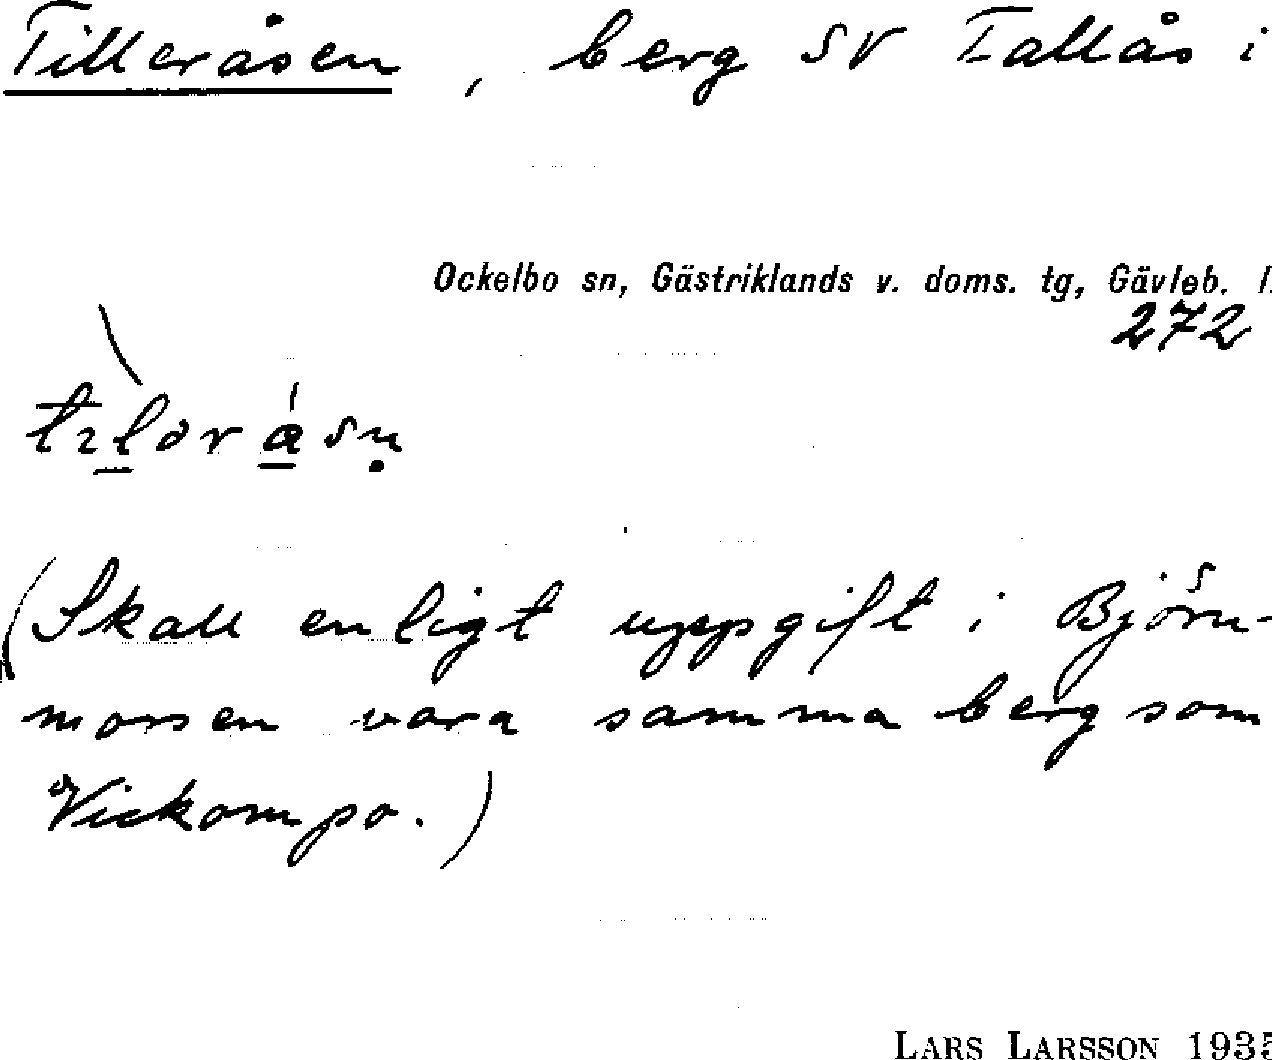 Tilleråsen, berg SV Tallås i
Ockelbo sn, Gästriklands v. doms. tg, Gävleb. l.
272
(Skall enligt uppgift i Björn-
morsen vara samma berg som
Vickompo.)
LARS LARSSON 1935